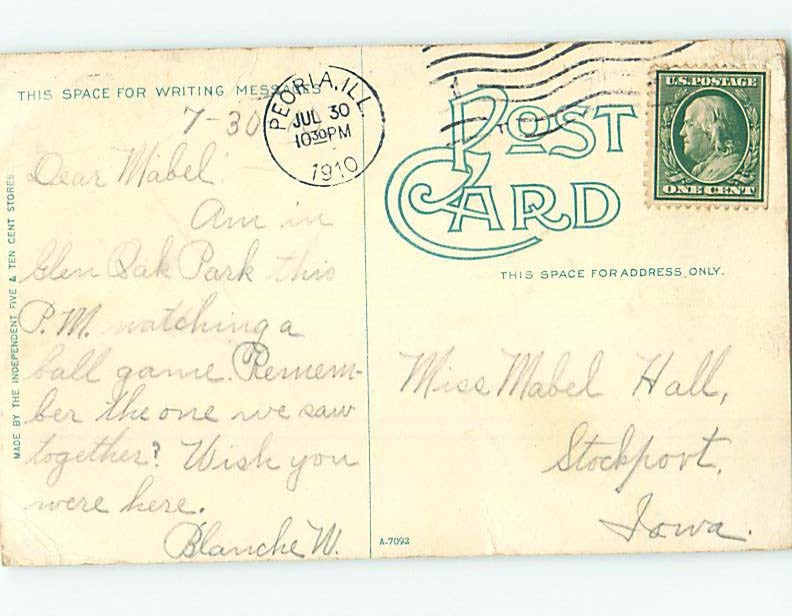 THIS SPACE FOR WRITING MESSAGES
7-30
PEORIA, ILL.
JUL 30
10 30 PM
1910
Dear Mabel:-
Am in
Glen Oak Park this
P.M. watching a
ball game. Remem-
ber the one we saw
together? Wish you
were here.
Blanche W.
MADE BY THE INDEPENDENT FIVE & TEN CENT STORES
POST
CARD
U.S. POSTAGE
ONE CENT
THIS SPACE FOR ADDRESS ONLY.
Miss Mabel Hall,
Stockport,
Iowa.
A-7092